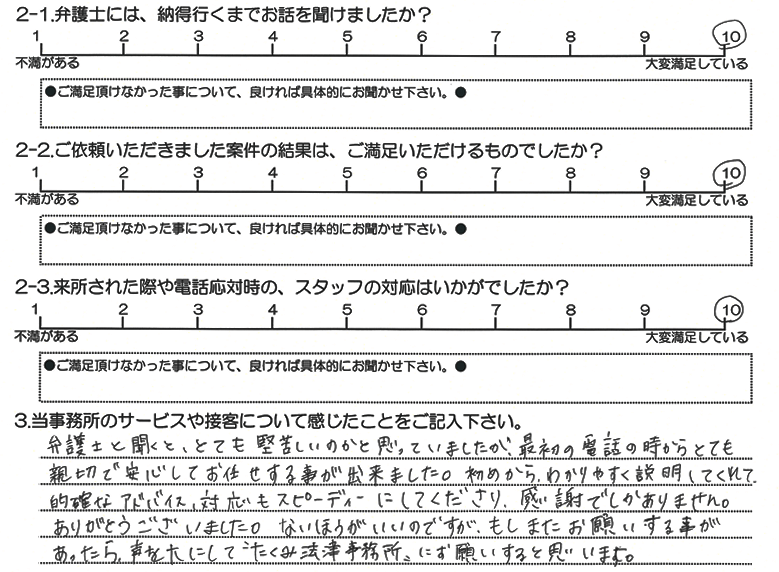 2-1.弁護士には、納得行くまでお話を聞けましたか？
1 2 3 4 5 6 7 8 9 10
不満がある 大変満足している
●ご満足頂けなかった事について、良ければ具体的にお聞かせ下さい。●
2-2.ご依頼いただきました案件の結果は、ご満足いただけるものでしたか？
1 2 3 4 5 6 7 8 9 10
不満がある 大変満足している
●ご満足頂けなかった事について、良ければ具体的にお聞かせ下さい。●
2-3.来所された際や電話応対時の、スタッフの対応はいかがでしたか？
1 2 3 4 5 6 7 8 9 10
不満がある 大変満足している
●ご満足頂けなかった事について、良ければ具体的にお聞かせ下さい。●
3.当事務所のサービスや接客について感じたことをご記入下さい。
弁護士と聞くと、とても堅苦しいのかと思っていましたが、最初の電話の時からとても
親切で安心してお任せする事が出来ました。初めから、わかりやすく説明してくれて、
的確なアドバイス、対応もスピーディーにしてくださり、感謝でしかありません。
ありがとうございました。ないほうがいいのですが、もしまたお願いする事が
あったら、声を大にして「たくみ法律事務所」にお願いすると思います。